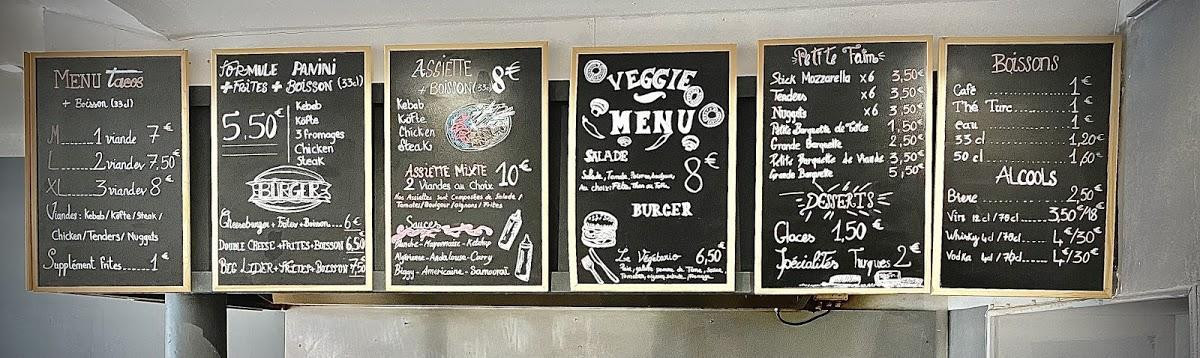 MENU tacos
+ Boisson (33cl)
M......1 viande 7€
L......2 viandes 7,50€
XL......3 viandes 8€
Viandes : Kebab/Köfte/Steak/
Chicken/Tenders/Nuggets
Supplément frites......1€
FORMULE PANINI
+ FRITES + BOISSON (33cl)
5.50€
Kebab
Köfte
3 fromages
Chicken
Steak
BURGER
Cheeseburger + Frites + Boisson... 6€
DOUBLE CHEESE + FRITES + BOISSON 6,50
BIG LIDER + FRITES + BOISSON 7,50
ASSIETTE
+ BOISSON (33cl) 8€
Kebab
Köfte
Chicken
Steak
ASSIETTE MIXTE 10€
2 Viandes au Choix
Nos Assiettes sont Composées de Salade/
Tomates/Boulgour/oignons/Frites
Sauces
Blanche-Mayonnaise-Ketchup
Algérienne-Andalouse-Curry
Biggy-Americaine-Samouraï
VEGGIE
MENU
SALADE 8€
Salade, Tomate,
Au choix: Féta, Thon ou
BURGER
Le Végétario 6,50
Petite Faim
Stick Mozzarella x6 3,50€
Tenders x6 3,50€
Nuggets x6 3,50€
Petite Barquette de Frites 1,50€
Grande Barquette 2,50€
Petite Barquette de Viande 3,50€
Grande Barquette 5,50€
DESSERTS
Glaces 1,50€
Spécialités Turques 2€
Boissons
Café ......... 1€
Thé Turc......... 1€
eau ......... 1€
33 cl ......... 1,20€
50 cl ......... 1,60€
ALCOOLS
Biere......... 2,50€
Vins 12cl/70cl...... 3,50€/18€
Whisky 4cl/70cl...... 4€/30€
Vodka 4cl/70cl...... 4€/30€